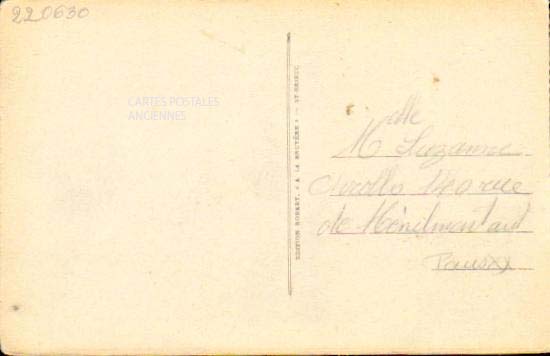 220630
CARTES POSTALES
ANCIENNES
EDITION ROBERT, « A LA BRUYÈRE » — ST-BRIEUC
Mlle Suzanne
rue
de Ménilmontant
Paris XX